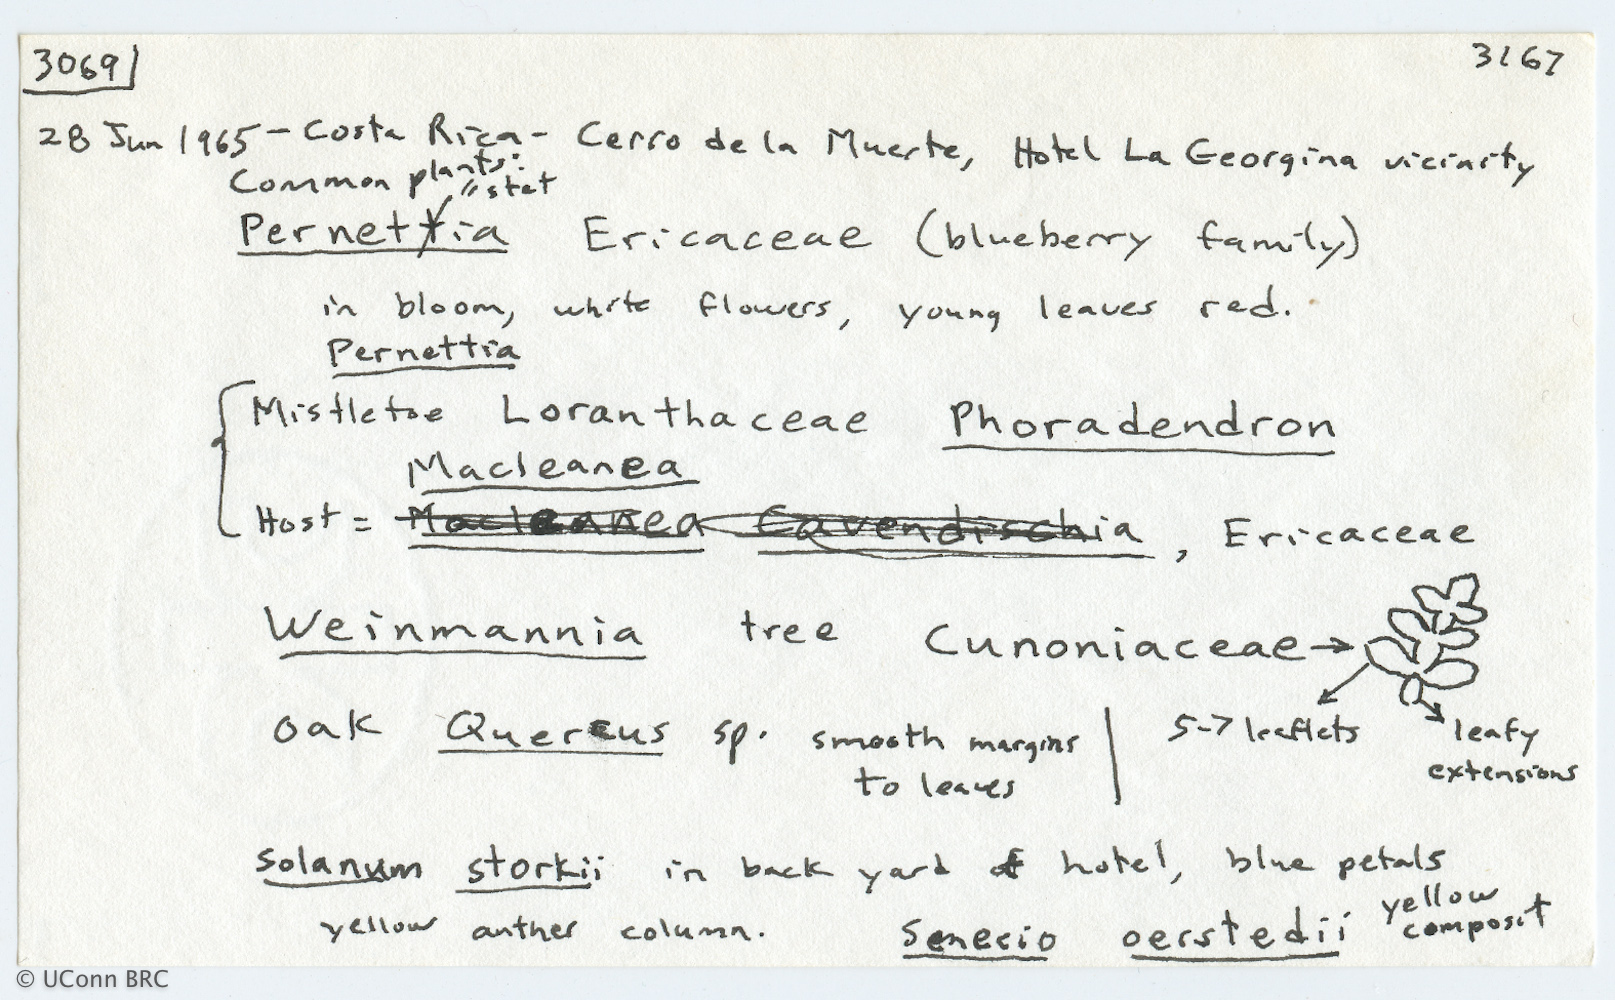 3069 3167
28 Jun 1965 - Costa Rica - Cerro de la Muerte, Hotel La Georgina vicinity
Common plants:
"stet
Pernettia Ericaceae (blueberry family)
in bloom, white flowers, young leaves red.
Pernettia
Mistletoe Loranthaceae Phoradendron
Macleanea
Host = Macleanea Cavendischia, Ericaceae
Weinmannia tree Cunoniaceae →
oak Quercus sp. smooth margins | 5-7 leaflets leafy
to leaves extensions
Solanum storkii in back yard of hotel, blue petals
yellow anther column. Senecio oerstedii yellow composit
© UConn BRC